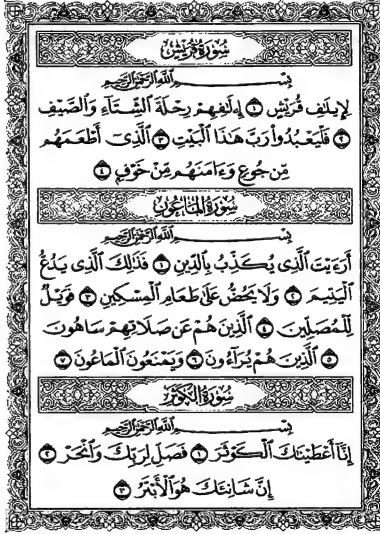 سُورَةُ قُرَيْشٍ
بِسْمِ ٱللَّهِ ٱلرَّحْمَٰنِ ٱلرَّحِيمِ
لِإِيلَٰفِ قُرَيْشٍ ١ إِۦلَٰفِهِمْ رِحْلَةَ ٱلشِّتَآءِ وَٱلصَّيْفِ
٢ فَلْيَعْبُدُوا۟ رَبَّ هَٰذَا ٱلْبَيْتِ ٣ ٱلَّذِىٓ أَطْعَمَهُم
مِّن جُوعٍ وَءَامَنَهُم مِّنْ خَوْفٍۭ ٤
سُورَةُ ٱلْمَاعُونِ
بِسْمِ ٱللَّهِ ٱلرَّحْمَٰنِ ٱلرَّحِيمِ
أَرَءَيْتَ ٱلَّذِى يُكَذِّبُ بِٱلدِّينِ ١ فَذَٰلِكَ ٱلَّذِى يَدُعُّ
ٱلْيَتِيمَ ٢ وَلَا يَحُضُّ عَلَىٰ طَعَامِ ٱلْمِسْكِينِ ٣ فَوَيْلٌ
لِّلْمُصَلِّينَ ٤ ٱلَّذِينَ هُمْ عَن صَلَاتِهِمْ سَاهُونَ
٥ ٱلَّذِينَ هُمْ يُرَآءُونَ ٦ وَيَمْنَعُونَ ٱلْمَاعُونَ ٧
سُورَةُ ٱلْكَوْثَرِ
بِسْمِ ٱللَّهِ ٱلرَّحْمَٰنِ ٱلرَّحِيمِ
إِنَّآ أَعْطَيْنَٰكَ ٱلْكَوْثَرَ ١ فَصَلِّ لِرَبِّكَ وَٱنْحَرْ ٢
إِنَّ شَانِئَكَ هُوَ ٱلْأَبْتَرُ ٣